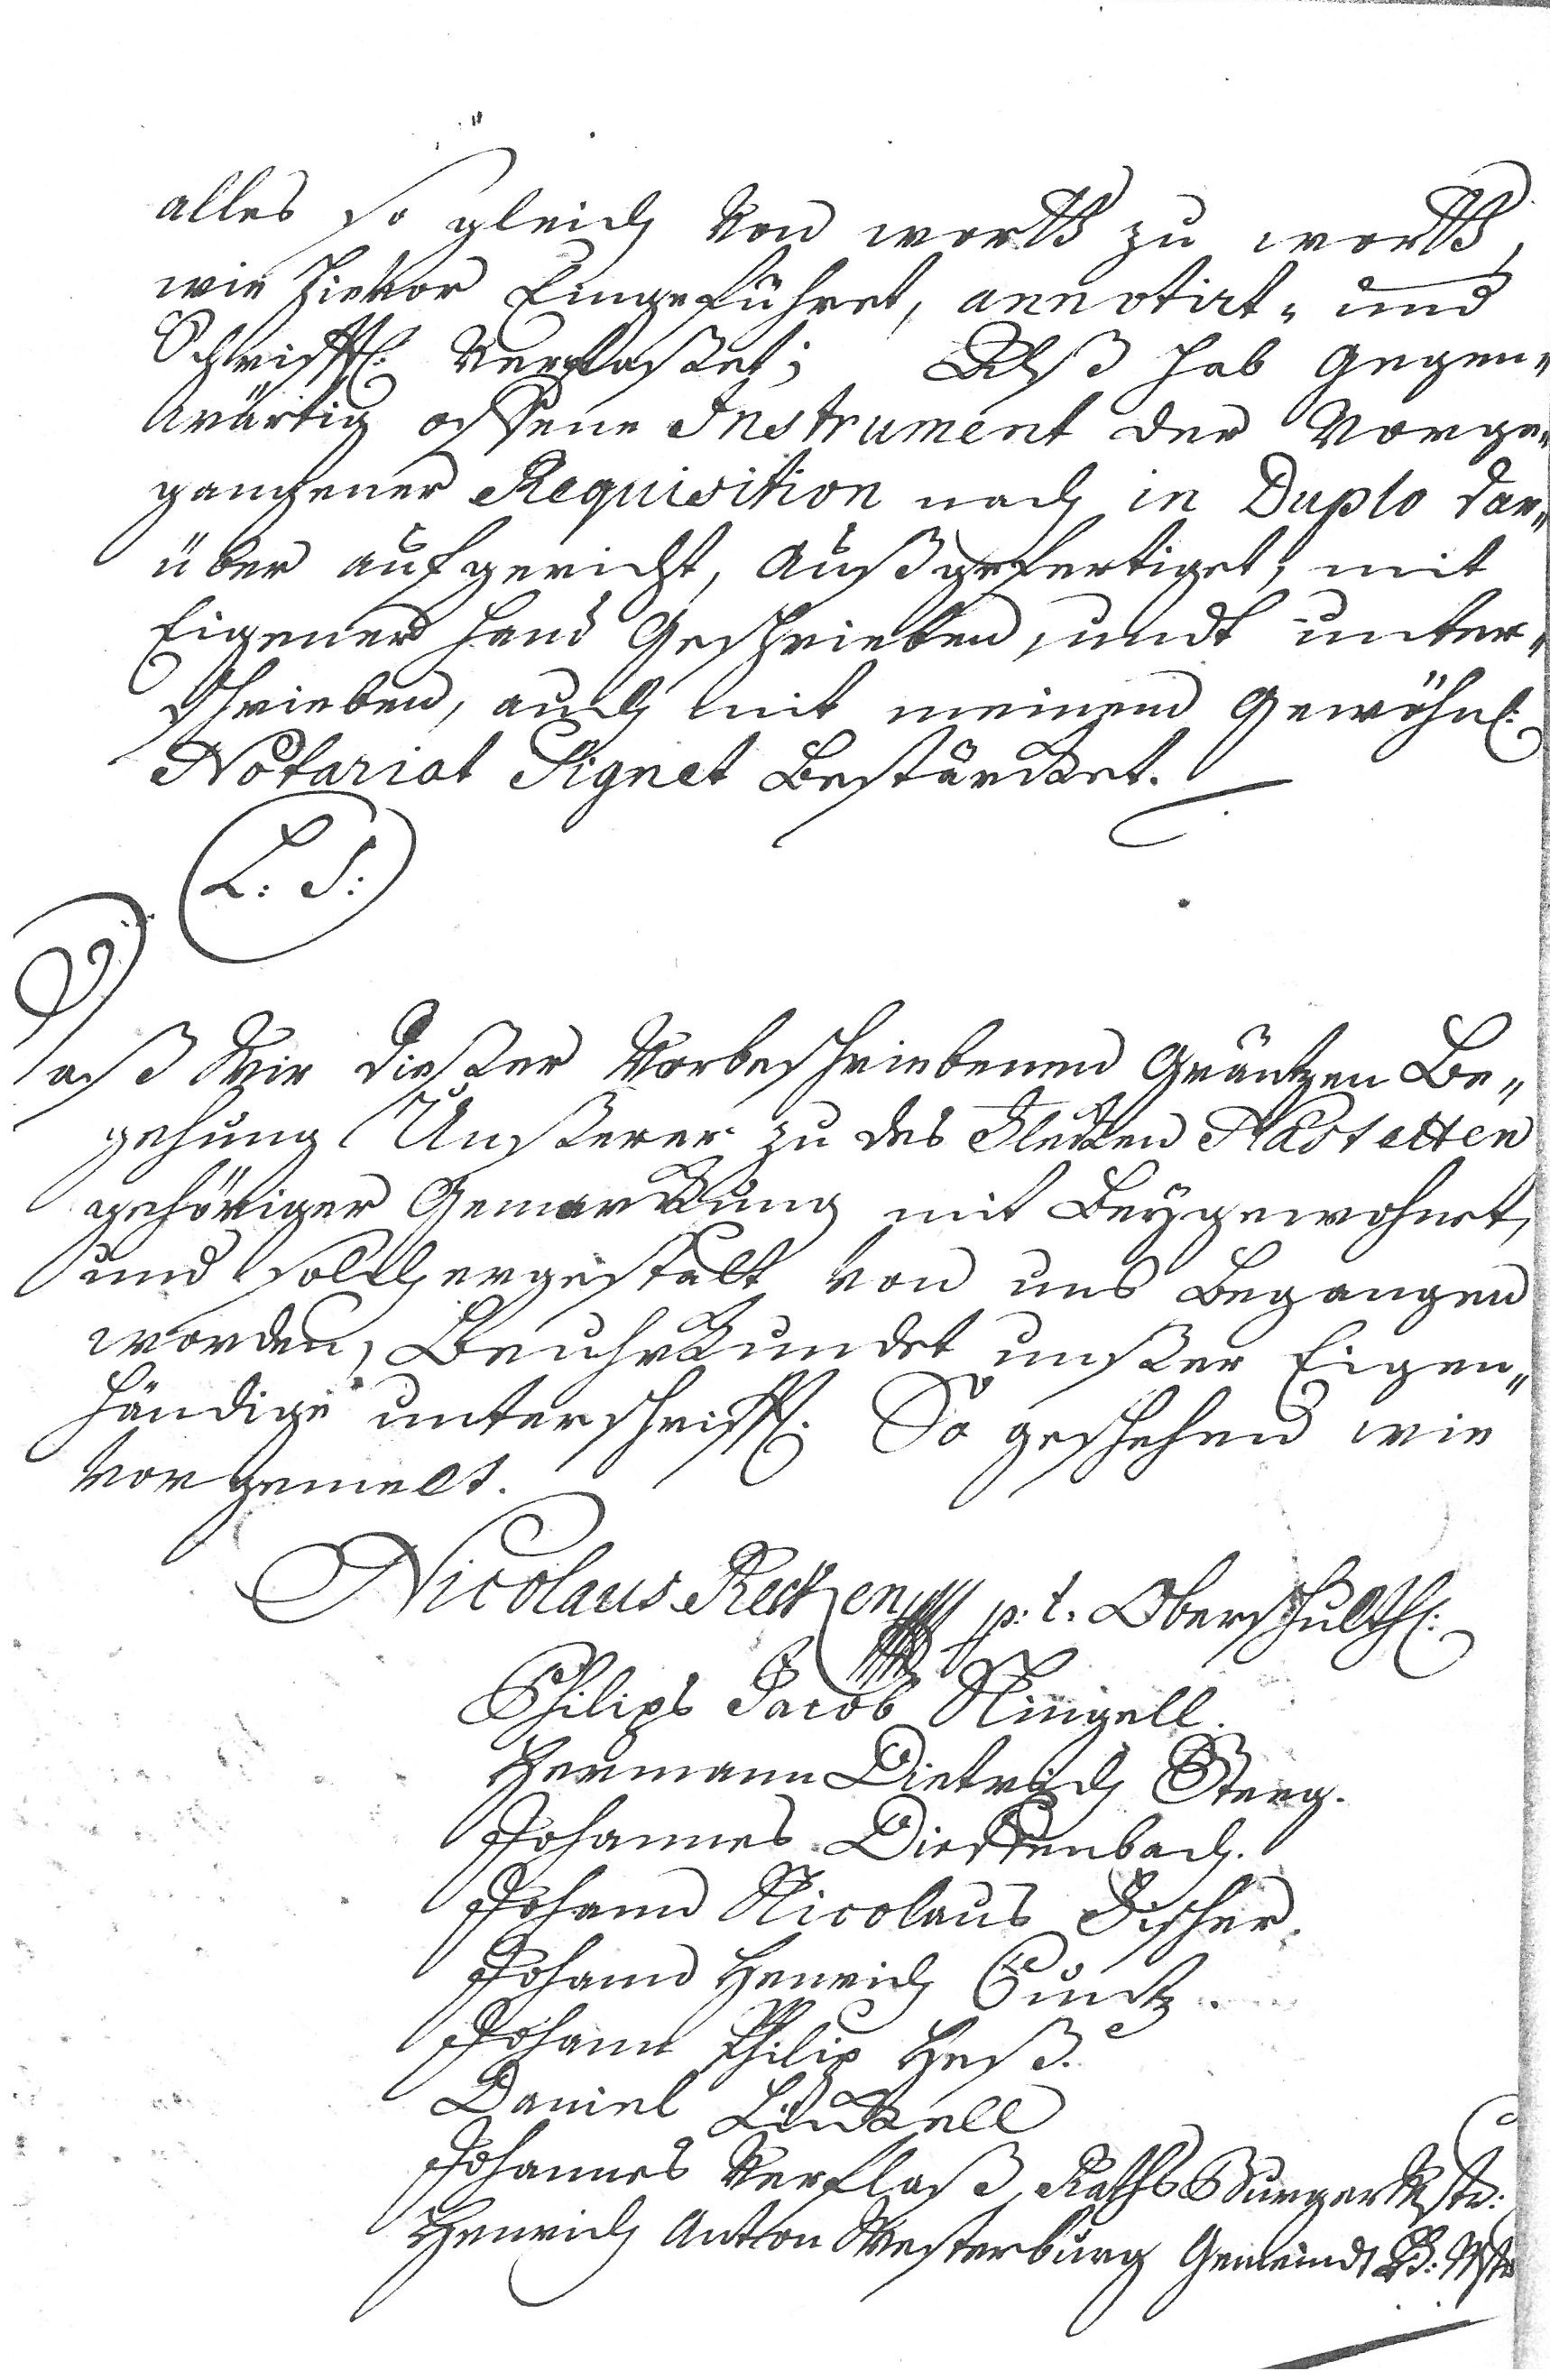 alles so gleich Von worth zu worth,
wie hievor Eingeführet, annotirt- und
Schrifftl: Verfasset; Alß hab gegen-
wärtig offene Instrument der Vorge-
gangener Requisition nach in Duplo dar-
über aufgericht, Außgefertiget, mit
Eigener hand Geschrieben, undt unter-
schrieben, auch mit meinem Gewöhnl:
Notariat Signet Bestärcket.
L: S:
Daß Wir dießer Vorbeschriebenen Gräntzen Be-
gehung Unßerer zu des Flecken Nastetten
gehöriger Gemarckung mit Beygewohnet,
und solchergestalt von uns Begangen
worden, Beuhrkundet unßer Eigen-
händige unterschrifft. So geschehen wie
Vorgemelt.
Nicolaus p: t: Oberschulth:
Philips Jacob Ringell.
Hermann Dietrich Steeg.
Johannes Dieffenbach.
Johann Nicolaus Fischer.
Johann Henrich Cuntz.
Johann Philip Heß.
Daniel Linckell
Johannes Verflaß, Raths Burger Mstr:
Henrich Anton Westerburg Gemeindt B: Mstr